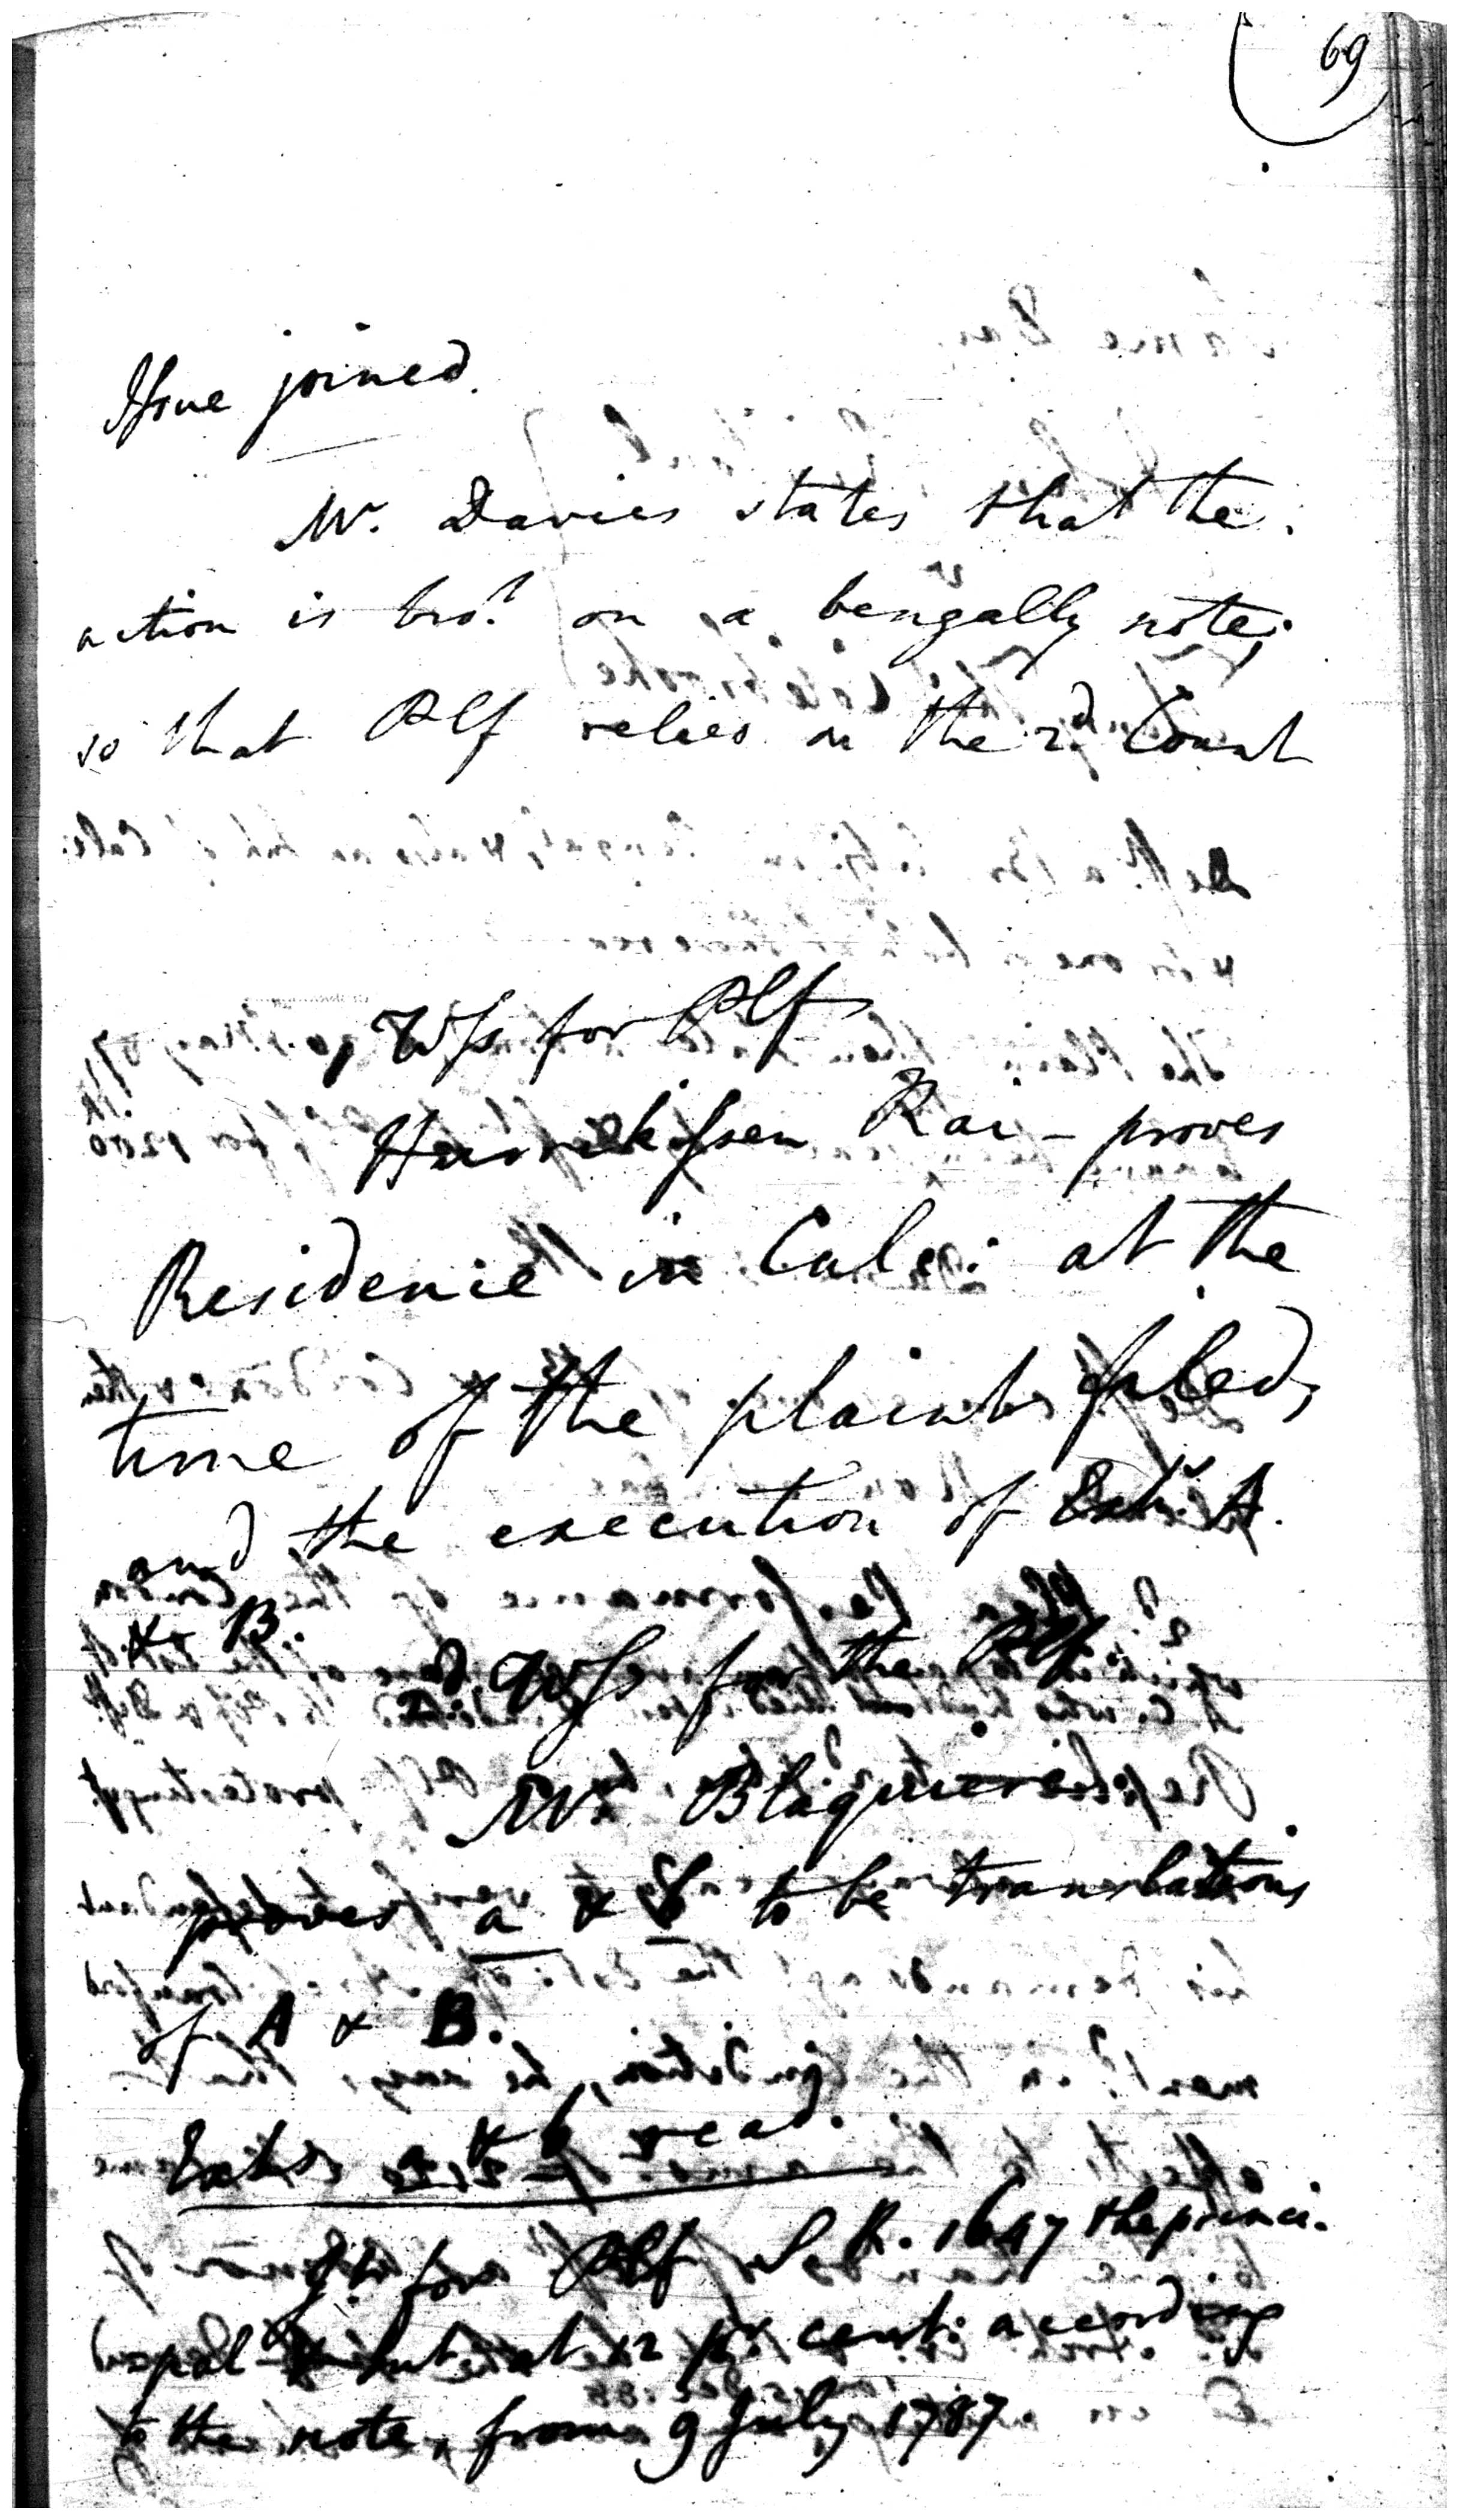 69
Issue joined.
Mr. Davies states that the
action is bro.t on a bengally note;
so that Plf relies on the 2d. Count
Wss for Plf
Hurrikissen Rai - proves
Residence in Calc: at the
time of the plaint filed,
and the execution of Exh. A.
& B.
2d. Wss for the Plf
Mr. Blaquiere
proves a & b to be translations
of A & B.
Exhs a & b read.
Jt. for Plf S.R. 1647 the princi-
pal & Int at 12 pr cent: according
to the note, from 9 July 1787